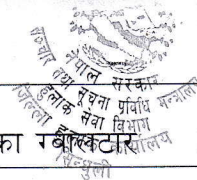 नेपाल सरकार
सञ्चार तथा सूचना प्रविधि मन्त्रालय
हुलाक सेवा विभाग
जिल्ला हुलाक कार्यालय
सिन्धुली
का